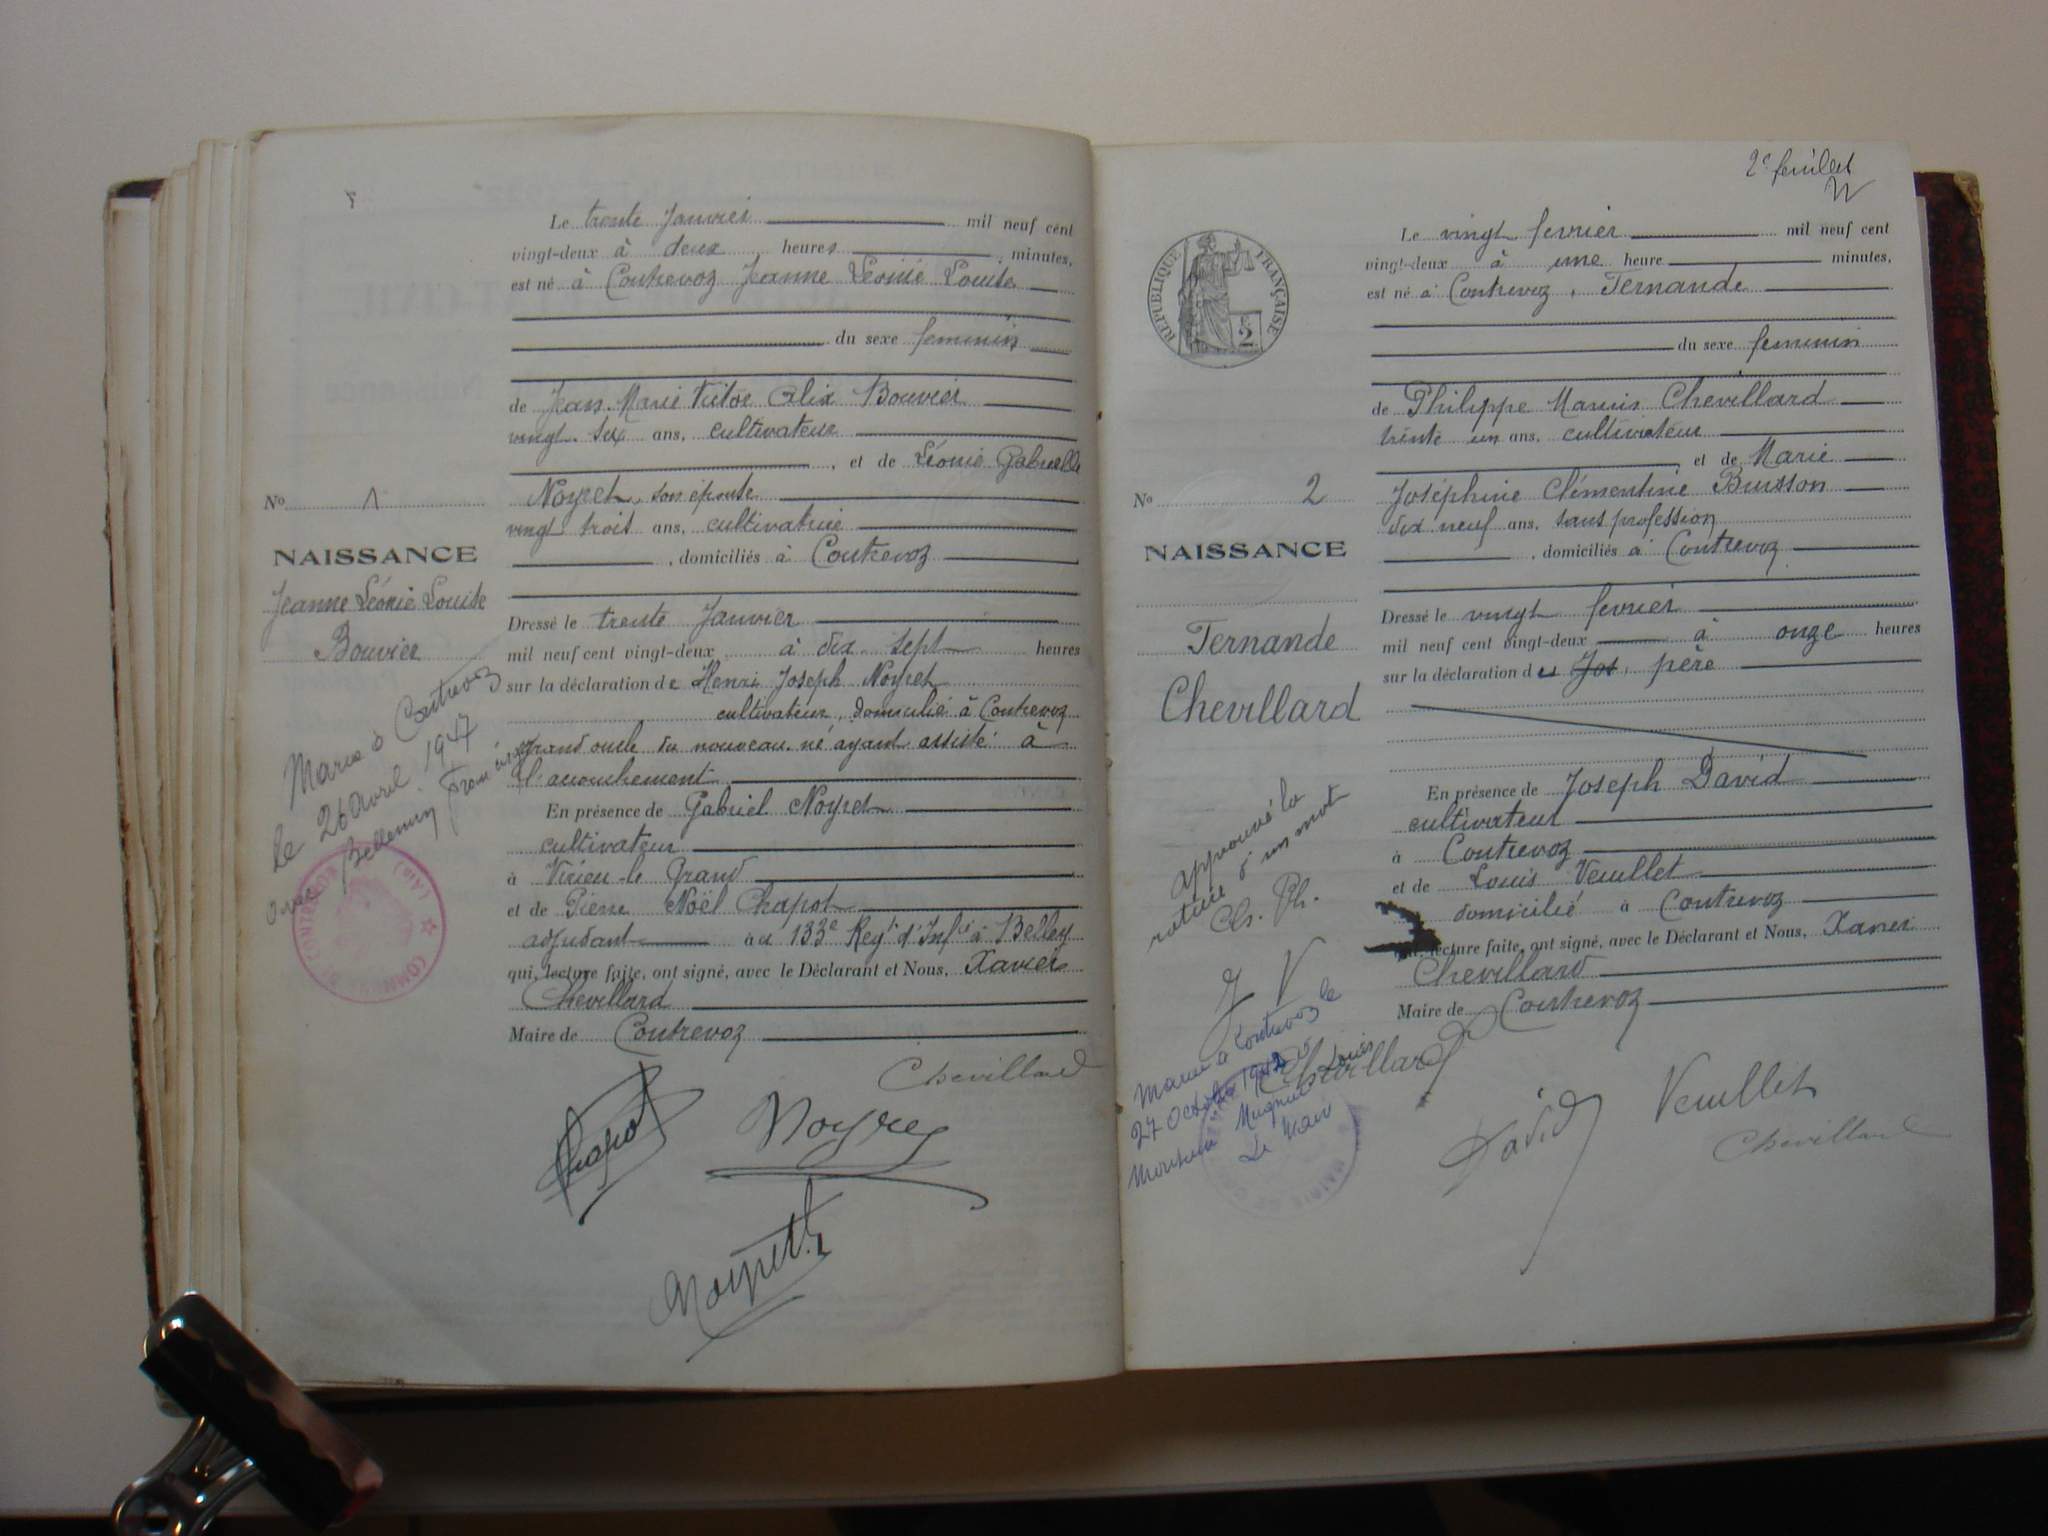 Le trente Janvier mil neuf cent
vingt-deux à deux heures minutes,
est né à Contrevoz Jeanne Léonie Louise
du sexe feminin
de Jean Marie Victor Alix Bouvier
vingt six ans, cultivateur
, et de Léonie Gabrielle
No 1
Noyret, son épouse
vingt trois ans, cultivatrice
, domiciliés à Contrevoz
NAISSANCE
Jeanne Léonie Louise
Bouvier
Dressé le trente Janvier
mil neuf cent vingt-deux à dix sept heures
sur la déclaration de Henri Joseph Noyret
cultivateur, domicilié à Contrevoz
grand oncle du nouveau né ayant assisté à
l'accouchement
En présence de Gabriel Noyret
cultivateur
à Virieu-le Grand
et de Pierre Noël Chapot
adjudant au 133e Regt d'Infie à Belley
qui, lecture faite, ont signé, avec le Déclarant et Nous, Xavier
Chevillard
Maire de Contrevoz
Marié à Contrevoz
le 26 avril 1947
avec Bellemin
COMMUNE DE CONTREVOZ (AIN)
Chevillard
Chapot
Noyret
Noyret
2e feuillet
RÉPUBLIQUE FRANÇAISE
2
Le vingt fevrier mil neuf cent
vingt-deux à une heure minutes,
est né à Contrevoz, Fernande
du sexe feminin
de Philippe Marius Chevillard
trente un ans, cultivateur
et de Marie
No 2
Joséphine Clémentine Buisson
dix neuf ans, sans profession
, domiciliés à Contrevoz
NAISSANCE
Fernande
Chevillard
Dressé le vingt fevrier
mil neuf cent vingt-deux à onze heures
sur la déclaration du Jos. père
En présence de Joseph David
cultivateur
à Contrevoz
et de Louis Veuillet
domicilié à Contrevoz
qui, lecture faite, ont signé, avec le Déclarant et Nous, Xavier
Chevillard
Maire de Contrevoz
approuvé la
rature d'un mot
Ch. Ph.
J V
Marié à Contrevoz le
27 Octobre 1942
Louis
Le Maire
MAIRIE DE
Chevillard
David
Veuillet
Chevillard